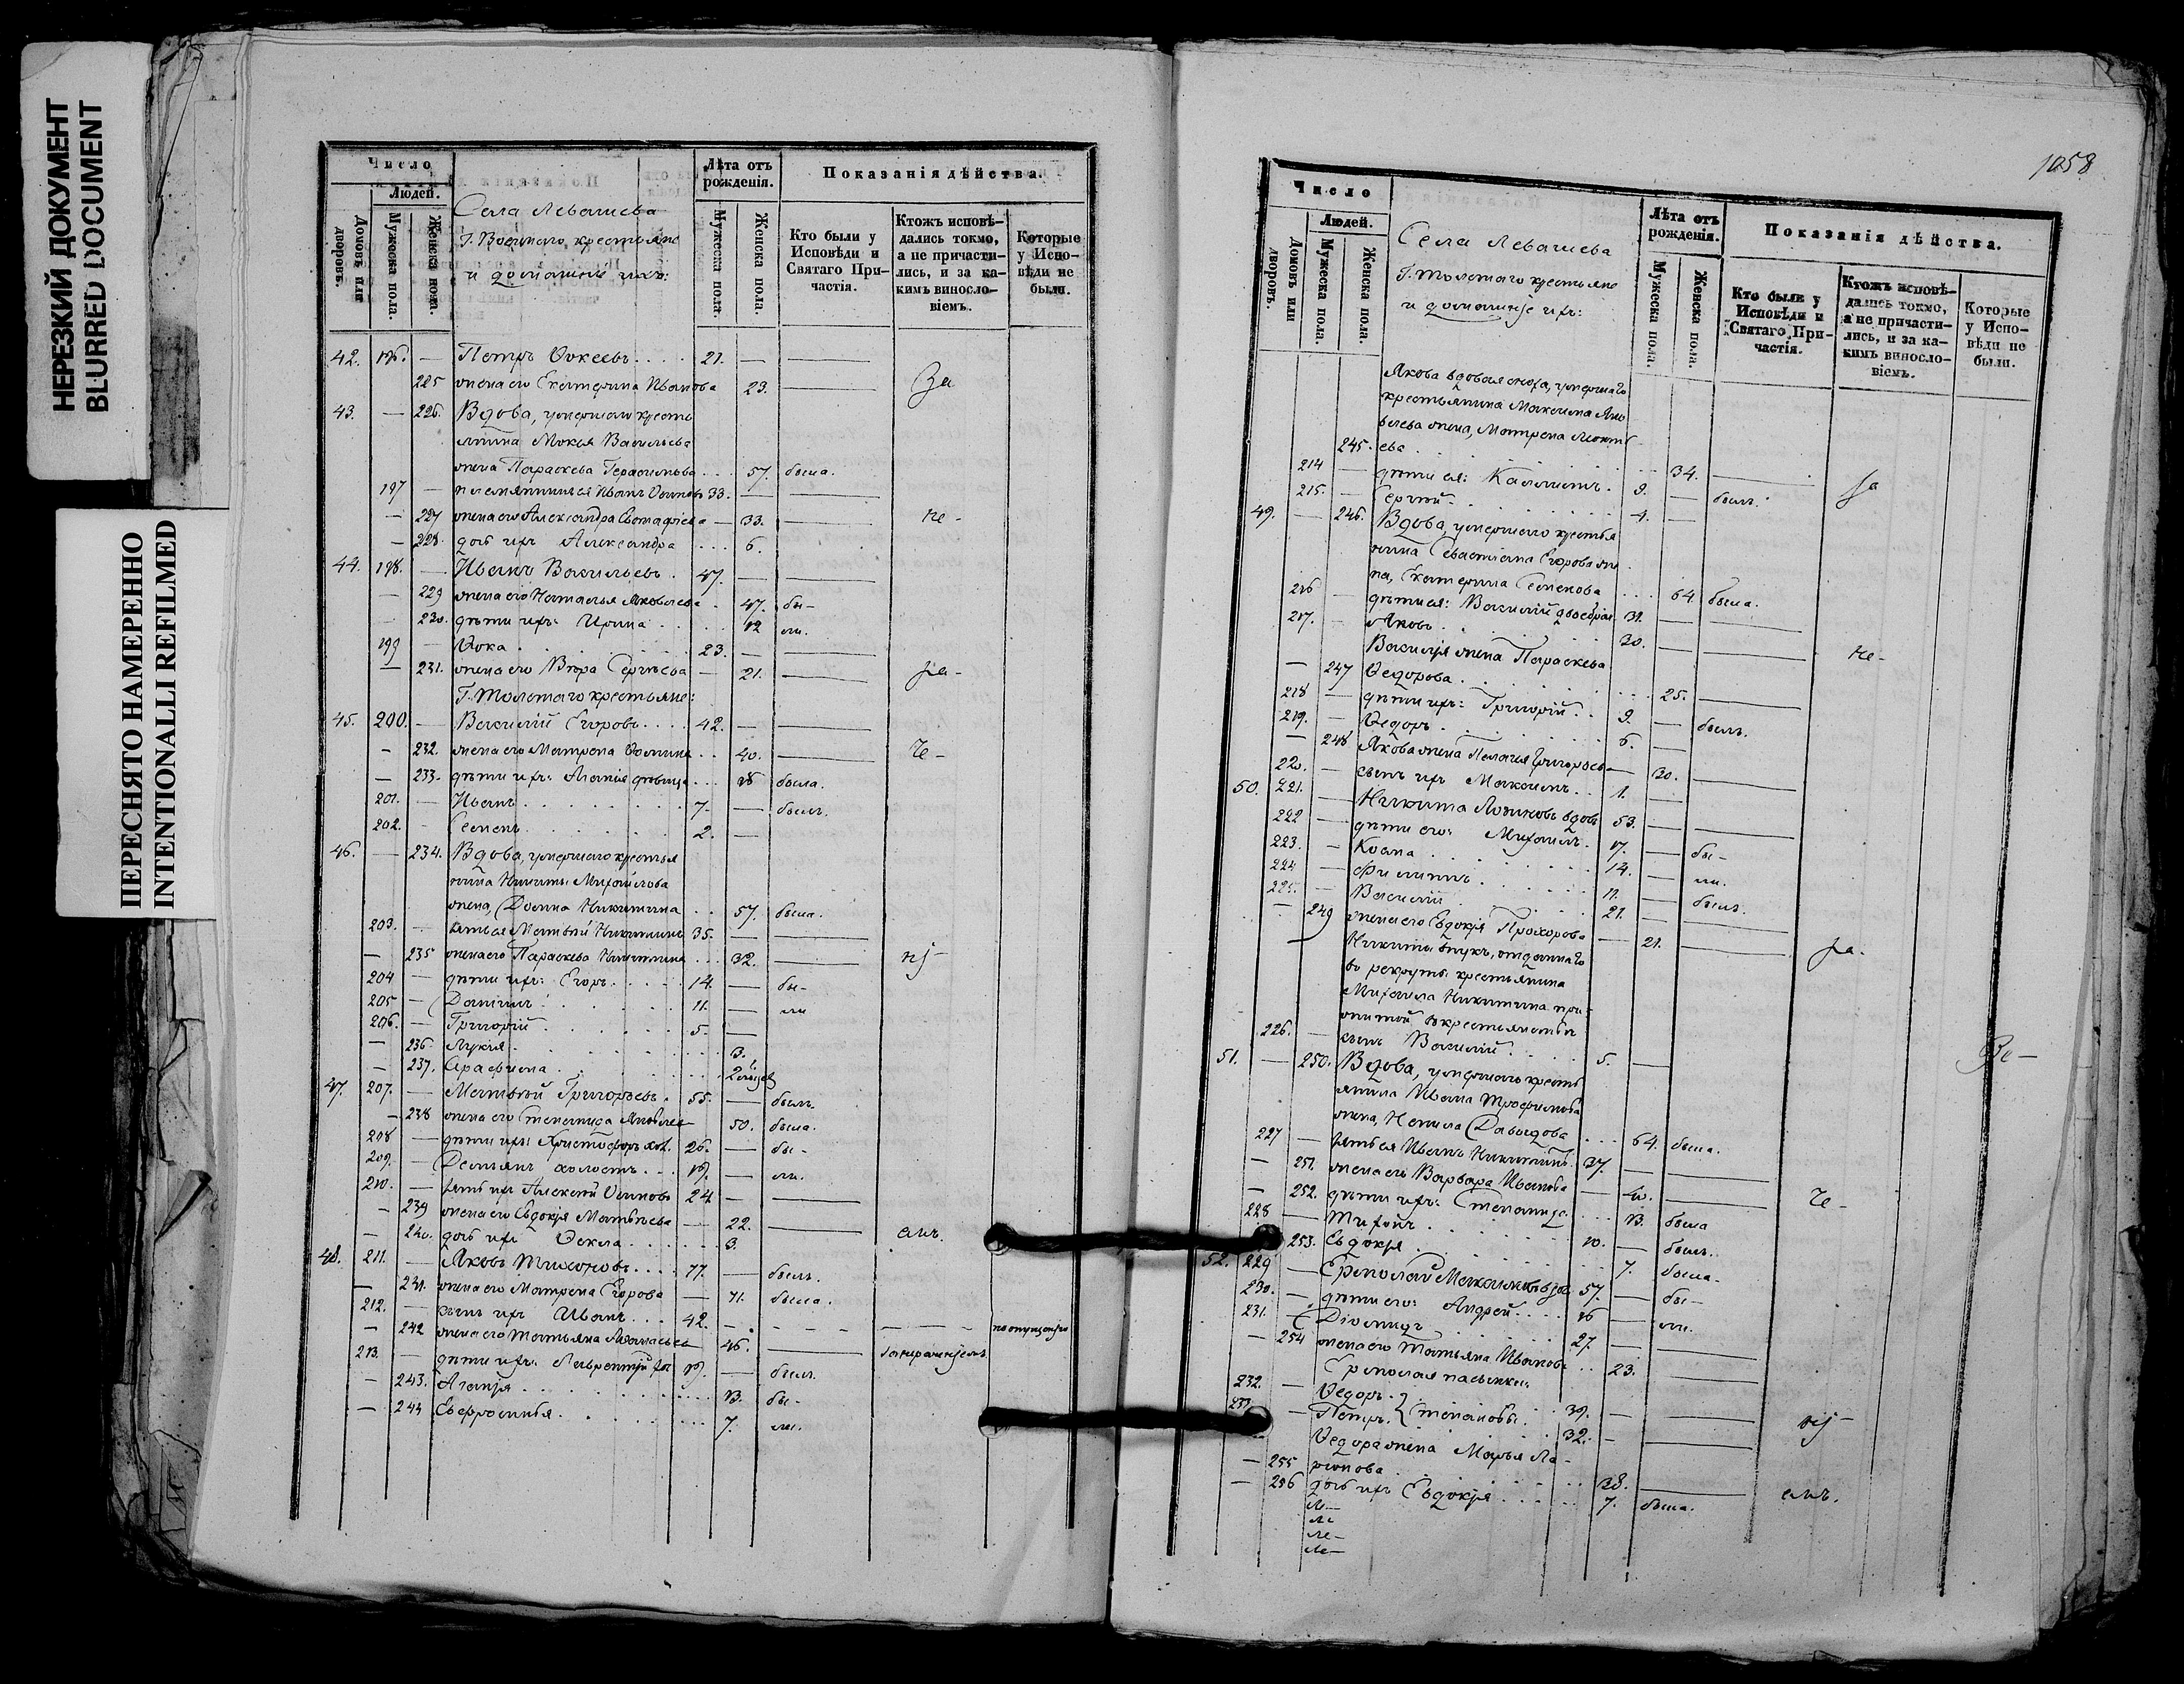 НЕРЕЗКИЙ ДОКУМЕНТ
BLURRED DOCUMENT
ПЕРЕСНЯТО НАМЕРЕННО
INTENTIONALLI REFILMED
Число
Людей.
Домовъ или дворовъ.
Мужеска пола.
Женска пола.
Села Левашева
крестьяне
и домашніе ихъ:
Лѣта отъ рожденія.
Мужеска пола.
Женска пола.
Показанія дѣйства.
Кто были у Исповѣди и Святаго Причастія.
Ктожъ исповѣдались токмо, а не причастились, и за какимъ винословіемъ.
Которые у Исповѣди не были.
42. 196. — Петръ Ѳокеевъ 21. —
225 жена его Екатерина Иванова 23. За
43. — 226. Вдова, умершаго кресть
янина Мокея Васильева
жена Параскева Герасимова 57. была.
197 — племянникъ ея Иванъ Осиповъ 33. —
— 227 жена его Александра Евстафіева — 33. не-
— 228. дочь ихъ Александра 6.
44. 198. — Иванъ Васильевъ. 47. —
— 229 жена его Наталья Яковлева 47. бы-
— 230. дѣти ихъ: Ирина 12 ли.
199 — Ѳока 23. —
— 231. жена его Вѣра Сергѣева — 21. ра-
Г. Толстаго крестьяне:
45. 200. — Василій Егоровъ 42. —
— 232. жена его Матрена Ѳомина 40. че-
— 233. дѣти ихъ: Агапія дѣвица 18 была.
201. — Иванъ 7. — былъ.
202. — Семенъ 2. —
46. — 234. Вдова, умершаго крестья
нина Никиты Михайлова
жена, Домна Никитина 57. была.
203. — зять ея Матвѣй Никитинъ 35. —
— 235 жена его Параскева Никитина 32. ні-
204 — дѣти ихъ: Егоръ 14. — бы-
205 — Даніилъ 11. — ли
206. — Григорій 5. —
— 236. Лукія 3.
— 237. Серафима 2
47. 207. — Матвѣй Григорьевъ. 55. — былъ.
— 238 жена его Степанида Яковлев 50. была.
208 — дѣти ихъ: Христофоръ хол. 26. — бы-
209. — Демьянъ холостъ 19. — ли.
210. — зять ихъ Алексѣй Осиповъ 24 —
— 239 жена его Евдокія Матвѣева — 22. емъ.
— 240. дочь ихъ Ѳекла 3.
48. 211. — Яковъ Тихоновъ 77. — былъ.
— 241. жена его Матрена Егорова — 71. была.
212. — сынъ ихъ Иванъ 42. — по опущенію
— 242 жена его Татьяна Аѳанасьев 46.
213. — дѣти ихъ: Лаврентій хол 19. — былъ.
— 243. Агапія 13. бы-
— 244 Евфросинія 7. ли.
1058
Число
Людей.
Домовъ или дворовъ.
Мужеска пола.
Женска пола.
Села Левашева
Г. Толстаго крестьяне
и домашніе ихъ:
Лѣта отъ рожденія.
Мужеска пола.
Женска пола.
Показанія дѣйства.
Кто были у Исповѣди и Святаго Причастія.
Ктожъ исповѣдались токмо, а не причастились, и за какимъ винословіемъ.
Которые у Исповѣди не были.
Якова вдовая сноха, умершаго
крестьянина Максима Яко
влева жена, Матрена Леонть
245. ева 34. За
214 — дѣти ея: Каллистъ. 9. — былъ.
215. — Сергѣй 4. —
49. — 246. Вдова, умершаго крестья
нина Севастіана Егорова же
на, Екатерина Семенова 64. была.
216 — дѣти ея: Василій 31. —
217. — Яковъ 30. — не-
Василія жена Параскева
— 247 Ѳедорова 25.
218 — дѣти ихъ: Григорій 9. — былъ.
219. — Ѳедоръ 6. —
— 248 Якова жена Пелагія Григорьев — 30.
220. — сынъ ихъ Максимъ 1. —
50. 221. — Никита Логиновъ вдов 53. —
222 — дѣти его: Михаилъ. 17. — бы-
223. — Козма 14. — ли.
224 — Филиппъ 11. — былъ.
225. — Василій 21. —
— 249 жена его Евдокія Прохорова — 21. ра-
Никиты внукъ, отданнаго
въ рекруты крестьянина
Михаила Никитина при-
житой въ крестьянствѣ
226. — сынъ Василій 5. —
51. — 250. Вдова, умершаго кресть
янина Ивана Трофимова
жена, Ненила Давыдова 64. была.
227 — зять ея Иванъ Никитинъ 37. —
— 251. жена его Варвара Иванова — 40. че-
— 252. дѣти ихъ: Степанида 13. была
228 — Тихонъ 10. — былъ.
253. Евдокія 7. была.
52. 229 — Ермолай Максимовъ вдов 57. — бы-
230. — дѣти его: Андрей 16 — ли.
231. — Діомидъ 27. —
— 254 жена его Татьяна Иванова 23.
Ермолая пасынки:
232. — Ѳедоръ 39. — ні-
233. — Петръ. } Степановы. 32. —
Ѳедора жена Марья Ла-
— 255 ріонова 38. емъ.
— 256 дочь ихъ Евдокія 7. была.